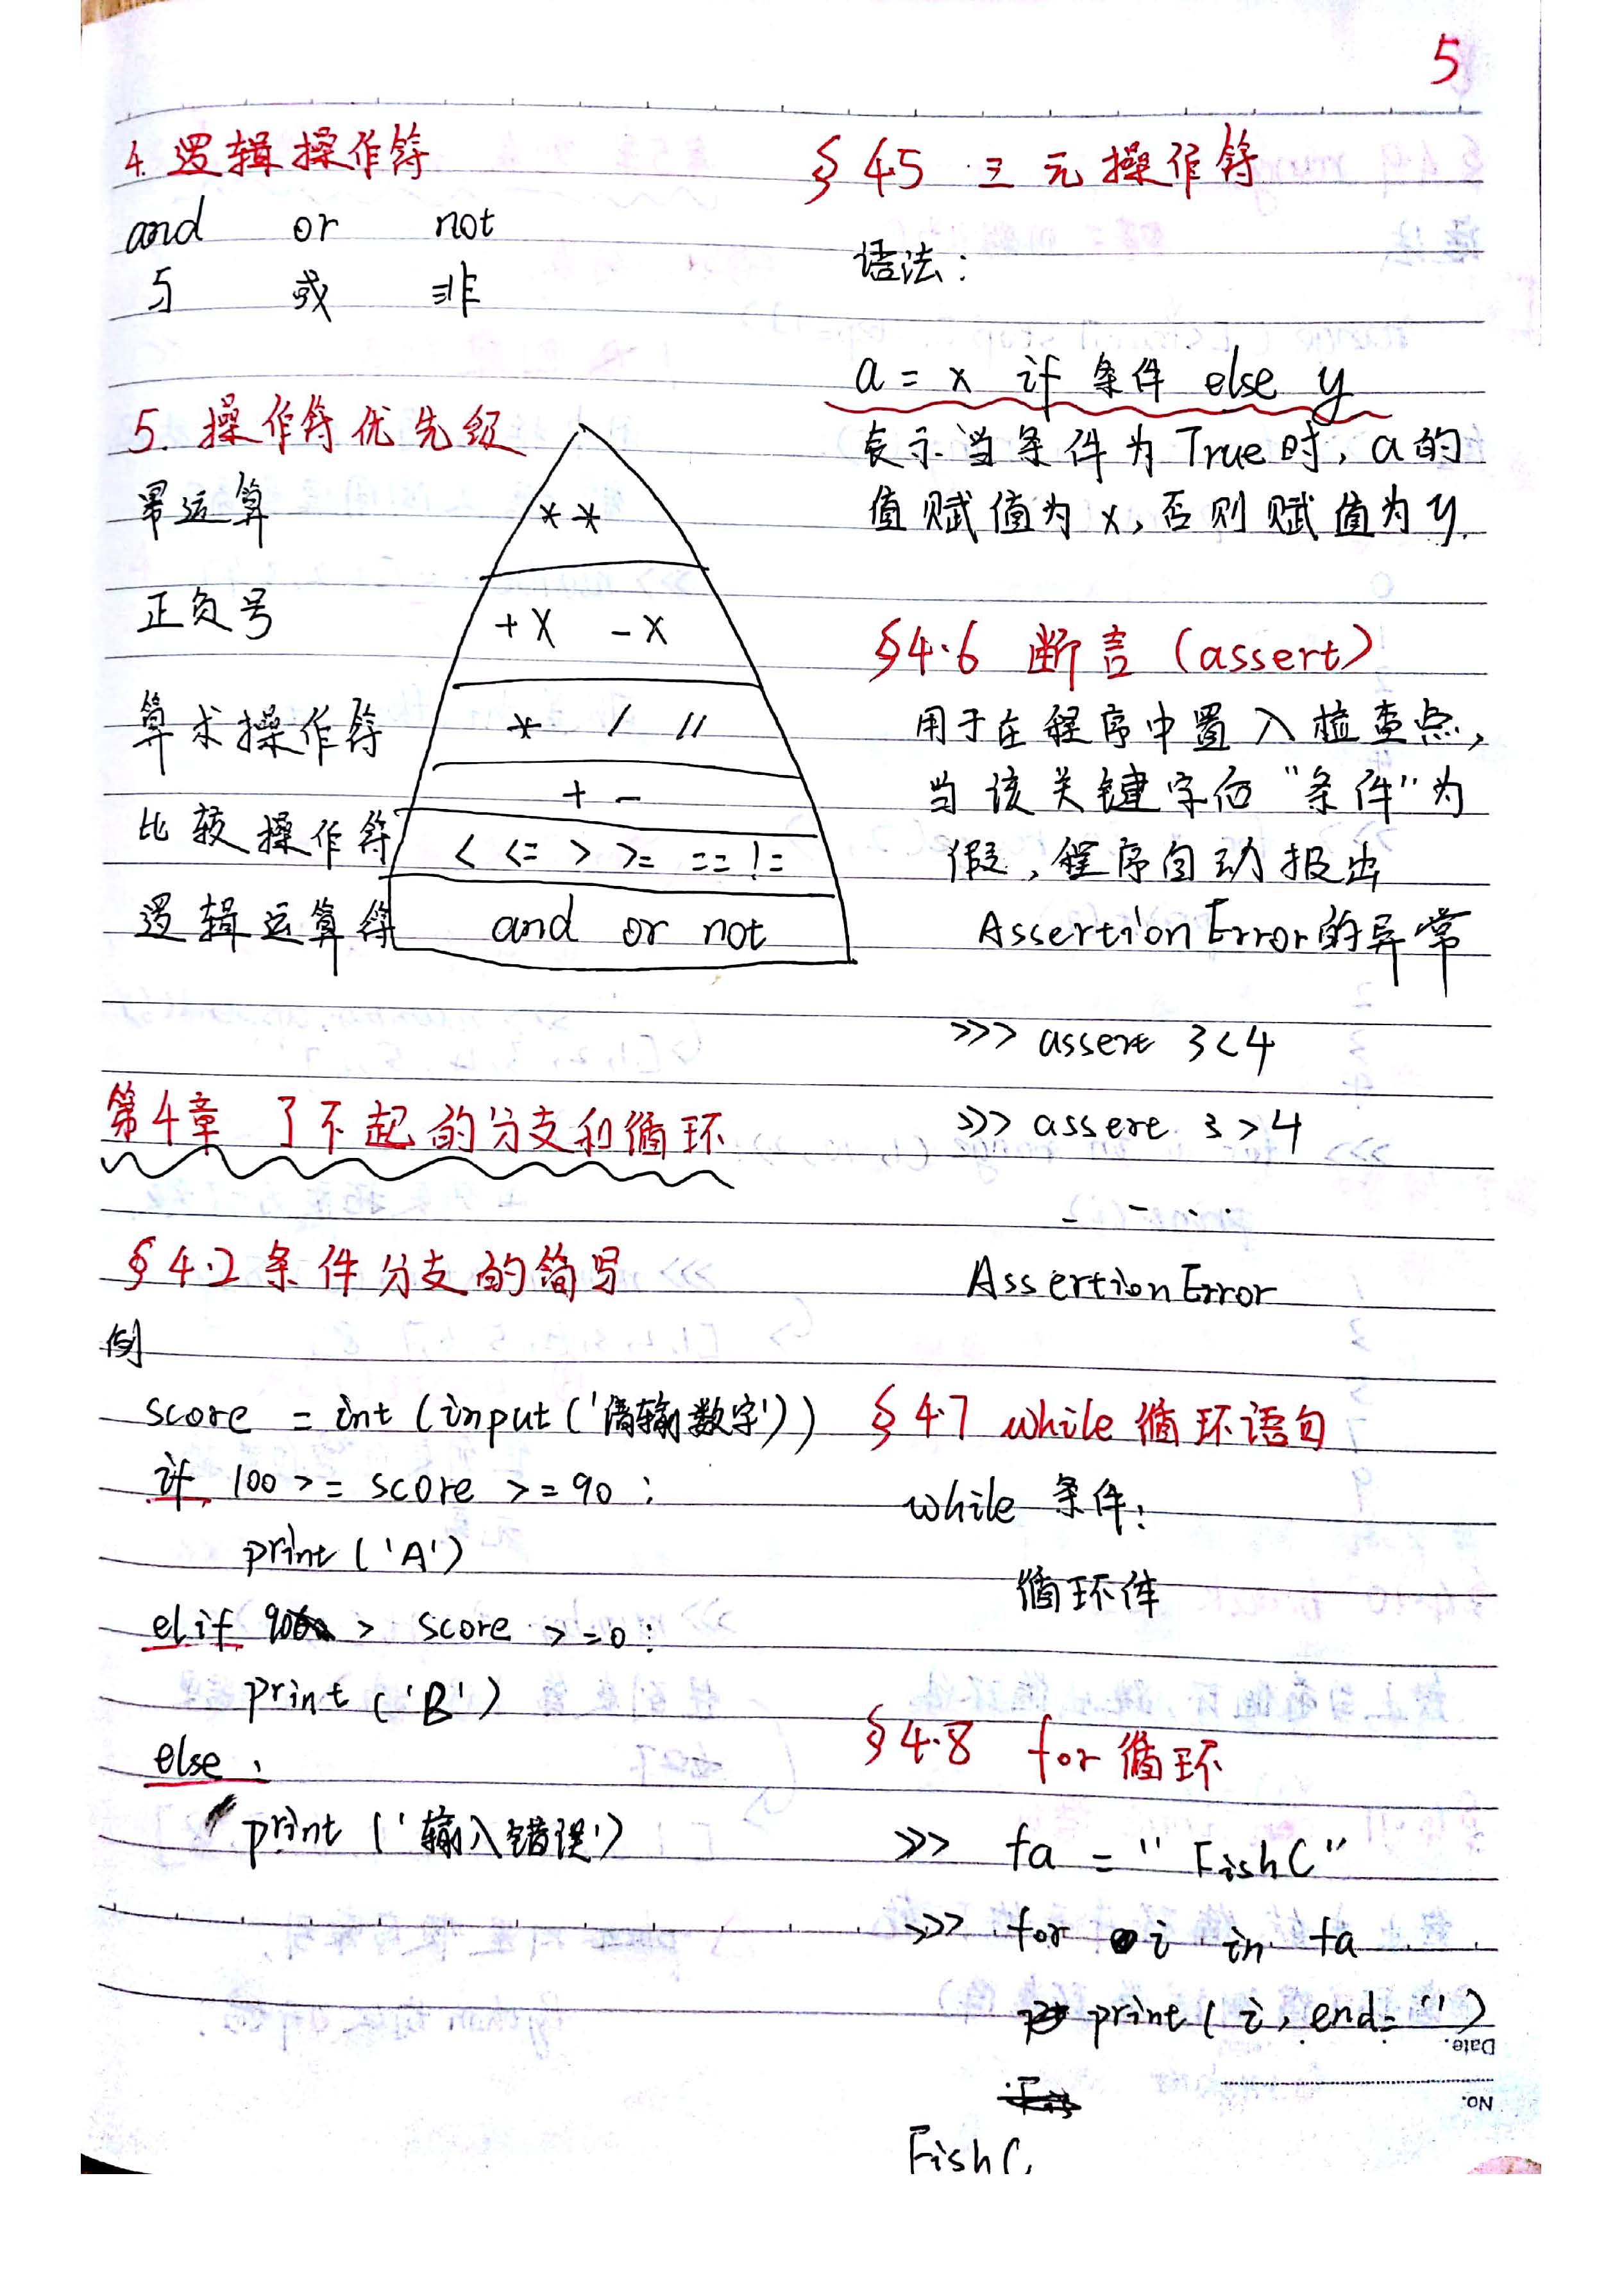 5
4. 逻辑操作符
and or not
与 或 非
5. 操作符优先级
幂运算 **
正负号 +x -x
算术操作符 * / //
+ -
比较操作符 < <= > >= == !=
逻辑运算符 and or not
第4章 了不起的分支和循环
§4.2 条件分支的简写
例
score = int (input ('请输数字'))
if 100 >= score >= 90 :
print ('A')
elif 90 > score >= 0 :
print ('B')
else :
print ('输入错误')
§4.5 三元操作符
语法：
a = x if 条件 else y
表示当条件为True时, a的
值赋值为x, 否则赋值为y.
§4.6 断言 (assert)
用于在程序中置入检查点,
当该关键字后"条件"为
假, 程序自动报出
AssertionError的异常
>>> assert 3<4
>>> assert 3>4
- - . .
AssertionError
§4.7 while 循环语句
while 条件:
循环体
§4.8 for 循环
>>> fa = "FishC"
>>> for i in fa
print ( i, end= '')
Date.
No.
FishC